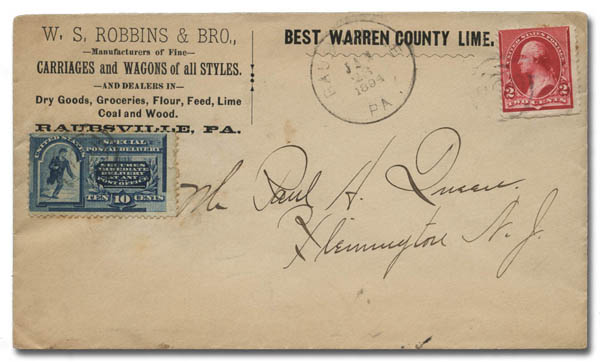 W. S. ROBBINS & BRO.,
—Manufacturers of Fine—
CARRIAGES and WAGONS of all STYLES.
—AND DEALERS IN—
Dry Goods, Groceries, Flour, Feed, Lime
Coal and Wood.
RAUBSVILLE, PA.
BEST WARREN COUNTY LIME,
JAN
1894
PA.
UNITED STATES POSTAGE
2 2
TWO CENTS
UNITED STATES
SPECIAL
POSTAL DELIVERY
SECURES
IMMEDIATE
DELIVERY
AT ANY
POST OFFICE
TEN 10 CENTS
Paul H.
Flemington N. J.